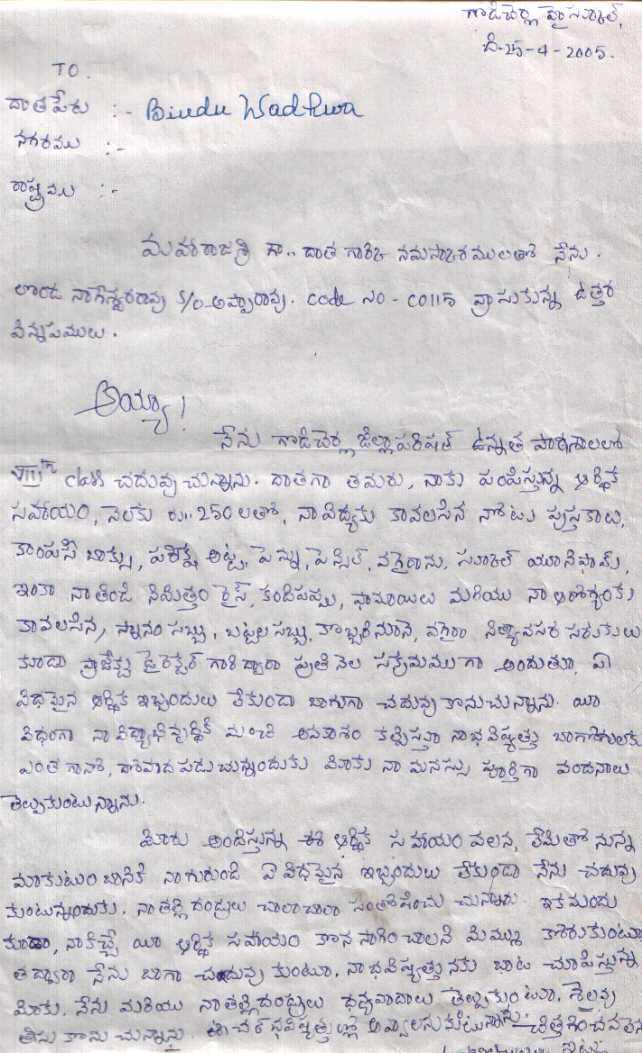 గాడిచెర్ల హైస్కూల్,
ది.25-4-2005.
TO.
దాతపేరు :- Bindu Wadhwa
నగరము :-
రాష్ట్రము :-
మహారాజశ్రీ గా.. దాత గారికి నమస్కారములతో నేను.
లాండ నాగేశ్వరరావు S/o అప్పారావు. code no - C0115 వ్రాసుకున్న ఉత్తర
విన్నపములు.
అయ్యా!
నేను గాడిచెర్ల జిల్లా పరిషత్ ఉన్నత పాఠశాలలో
VIIIth class చదువు చున్నాను. దాతగా తమరు, నాకు పంపిస్తున్న ఆర్థిక
సహాయం, నెలకు రు.. 250 లతో, నా విద్యకు కావలసిన నోటు పుస్తకాలు,
కాంపస్ బాక్సు, పరీక్ష అట్ట, పెన్ను, పెన్సిల్, వగైరాను, స్కూల్ యూనిఫామ్,
ఇంకా నా తిండి నిమిత్తం రైస్, కందిపప్పు, ఫామాయిలు మరియు నా ఆరోగ్యంకు
కావలసిన, స్నానం సబ్బు, బట్టల సబ్బు, కొబ్బరి నూనె, వగైరా నిత్యావసర సరుకులు
కూడా ప్రాజెక్టు డైరెక్టర్ గారి ద్వారా ప్రతి నెల సక్రమముగా అందుతూ, ఏ
విధమైన ఆర్థిక ఇబ్బందులు లేకుండా బాగుగా చదువు కొనుచున్నాను. యీ
విధంగా నా విద్యాభివృద్ధికి మంచి అవకాశం కల్పిస్తూ నా భవిష్యత్తు
ఎంత గానో, పడు చున్నందుకు మీకు నా మనస్సు పూర్తిగా వందనాలు
తెల్పుకుంటున్నాను.
మీరు అందిస్తున్న ఈ ఆర్థిక సహాయం వలన, లేమితో నున్న
మా కుటుంబానికి నా గురుండి ఏ విధమైన ఇబ్బందులు లేకుండా నేను చదువు
కుంటున్నందుకు. నా తల్లి దండ్రులు చాలా చాలా సంతోషించు చున్నారు. ఇక ముందు
కూడా, నాకిచ్చే యీ ఆర్థిక సహాయం కొన సాగించాలని మిమ్ము కోరుకుంటూ
తద్వారా నేను బాగా చదువు కుంటూ. నా భవిష్యత్తునకు బాట చూపిస్తున్న
మీకు. నేను మరియు నా తల్లి దండ్రులు ధన్యవాదాలు తెల్పుకుంటూ. శెలవు
తీసు కొను చున్నాను